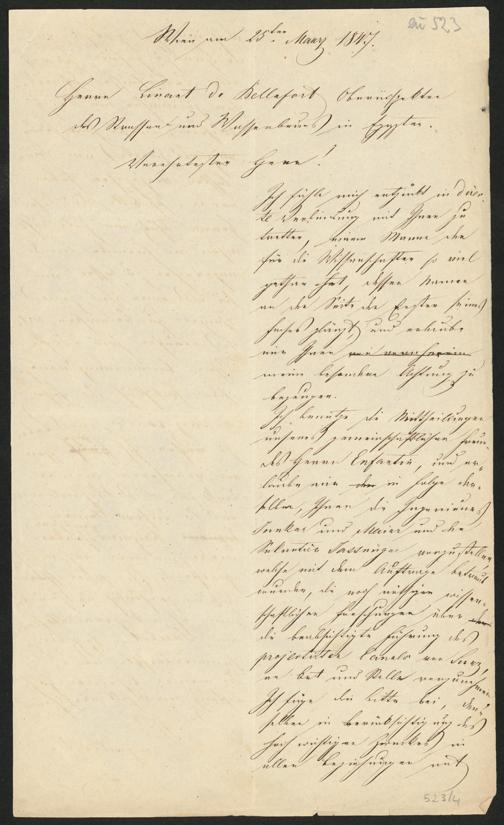 Au 523
Wien am 25ten März 1847.
Herrn Linant de Bellefort Oberinspektor
des Strassen und Wasserbaues in Egypten.
Verehrtester Herr!
Ich fühle mich entzückt in direk-
te Verbindung mit Ihnen zu
tretten, einem Manne der
für die Wissenschaften so viel
gethan hat, dessen Namen
an der Seite der Ersten seines
Faches glänzt, und erlaube
mir Ihnen
meine besondere Achtung zu
bezeugen.
Ich benütze die Mittheilungen
unseres gemeinschaftlichen Freun-
des Herrn Enfantin, und er-
laube mir den in Folge der-
selben, Ihnen die Ingenieure
und und den
Sekretär vorzustellen
welche mit dem Auftrage betraut
wurden, die noch nöthigen wissen-
schaftlichen Forschungen über
die beabsichtigte Führung des
projectirten Canals von Suez,
an Ort und Stelle vorzunehmen.
Ich füge die Bitte bei, den-
selben in Berücksichtigung des
hoch wichtigen Zweckes in
allen Beziehungen mit
523/4